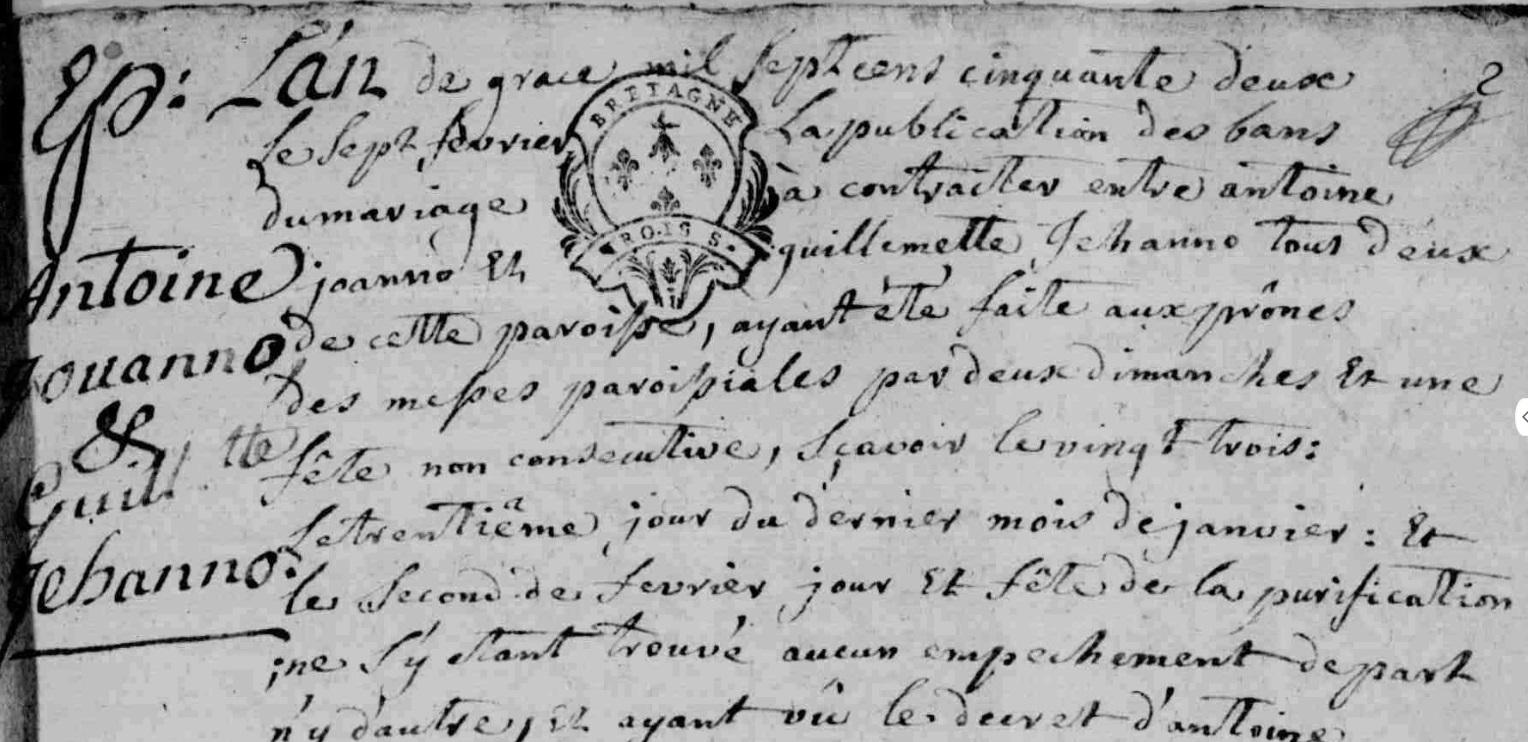 Ep:
Antoine
Jouanno
&
Guill. tte
Jehanno:
L'án de grace mil sept cens cinquante deux
le sept fevrier La publication des bans
du mariage à contracter entre antoine
joanno Et guillemette Jehanno tous deux
de cette paroisse, ayant été faite aux prônes
des messes paroissiales par deux dimanches Et une
fête non consecutive, sçavoir le vingt trois:
le trentiême jour du dernier mois de janvier: Et
le second de fevrier jour Et fête de la purification
;ne s'y étant trouvé aucun empechement de part
n'y d'autre, Et ayant vû le decret d'antoine
BRETAGNE
ROIS S.
2